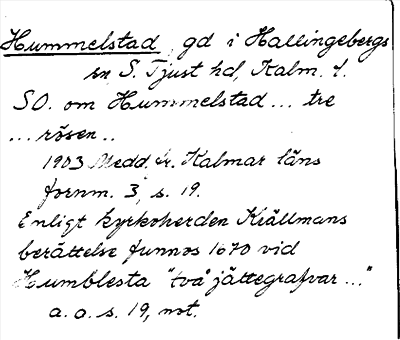 Hummelstad, gd i Hallingebergs
sn S. Tjust hd, Kalm. l.
SO. om Hummelstad... tre
... rösen..
1903 Medd. fr. Kalmar läns
fornm. 3, s. 19.
Enligt kyrkoherden Krällmans
berättelse funnos 1670 vid
Humblesta "två jättegrafvar..."
a. a. s. 19, not.